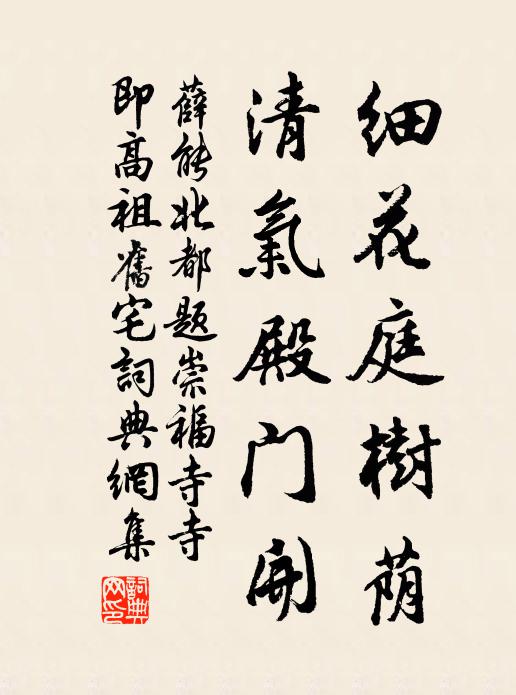 细花庭樹荫
清氣殿门開
薛能北都题崇福寺寺
即高祖舊宅詞典網集
詞典網印